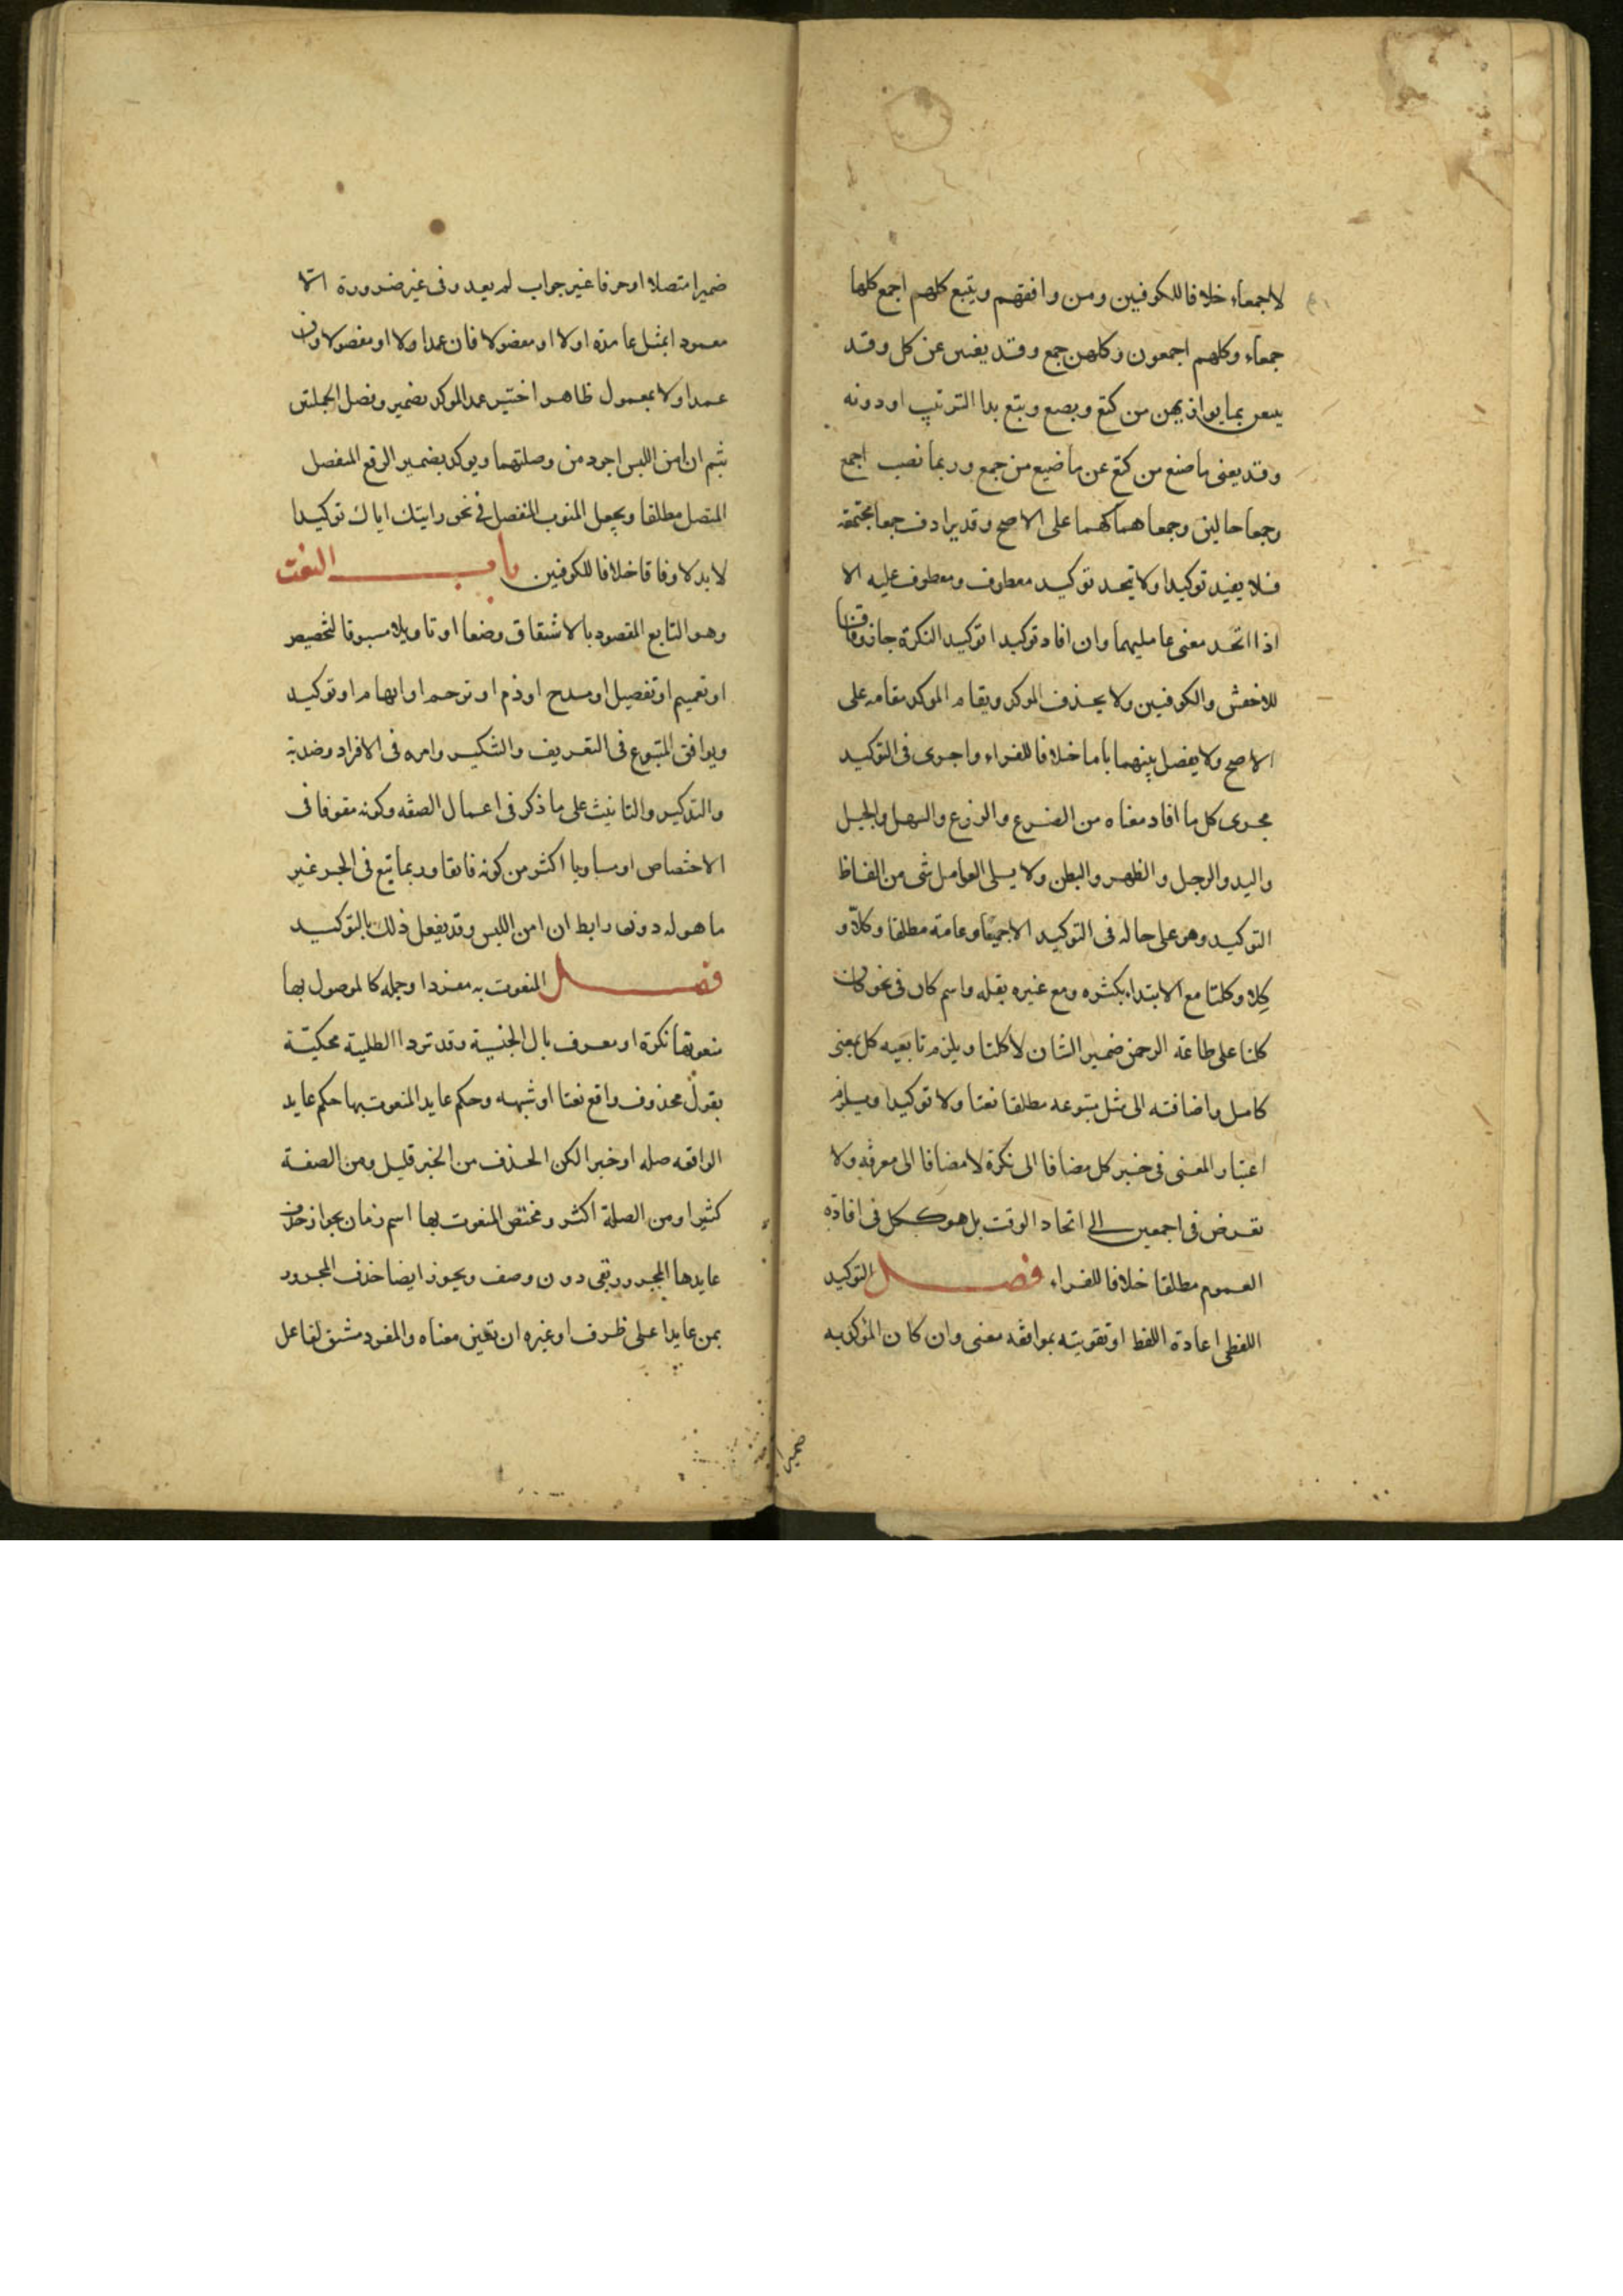 لاجمعاء خلافا للكوفيين ومن وافقهم ويتبع كلهم اجمع كلها
جمعاء وكلهم اجمعون وكلهن جمع وقد يغنين عن كل وقد
يتبعن بما يوازيهن من كتع وبصع وبتع بدا الترتيب او دونه
وقد يغنى ما صنع من كتع عن ما صيع من جمع وربما نصب اجمع
وجمعا حالين وجمعاهما كهما على الاصح وقد يرادف جمعا مجتمعة
فلا يفيد توكيدا ولا يتحد توكيد معطوف ومعطوف عليه الا
اذا اتحد معنى عامليهما وان افاد توكيدا توكيد النكرة جاز وفاقا
للاخفش والكوفيين ولا يحذف الموكد ويقام الموكد مقامه على
الاصح ولا يفصل بينهما باما خلافا للفراء واجرى فى التوكيد
مجرى كل ما افاد معناه من الضرع والزرع والسهل والجبل
واليد والرجل والظهر والبطن ولا يلى العوامل شى من الفاظ
التوكيد وهو على حاله فى التوكيد الا جميعا وعامة مطلقا وكلا و
كلا وكلتا مع الابتداء بكثره ومع غيره بقله واسم كان فى نحو كان
كلنا على طاعة الرحمن ضمير الشان لا كلنا ويلزم تابعيه كل بمعنى
كامل واضافته الى مثل متبوعه مطلقا نعتا ولا توكيدا ويلزم
اعتبار المعنى فى خبر كل مضافا الى نكرة لا مضافا الى معرفه ولا
تعرض فى اجمعين الى اتحاد الوقت بل هو ككل فى افادة
العموم مطلقا خلافا للفراء فصل التوكيد
اللفظى اعادة اللفظ او تقويته بموافقه معنى وان كان المؤكد به
ضمير
ضميرا متصلا او حرفا غير جواب لم يعد وفى غير ضرورة الا
معمودا بمثل عامده اولا او مفصولا فان عمدا ولا او مفصولا وان
عمد اولا بمعمول ظاهر اختير عمد الموكد بضمير وفصل الجملتين
بثم ان امن اللبس اجود من وصلتهما ويوكد بضمير الرفع المنفصل
المتصل مطلقا ويجعل المنوب المنفصل فى نحو رايتك اياك توكيدا
لا بدلا وفاقا خلافا للكوفيين باب النعت
وهو التابع المقصود بالاشتقاق وضعا او تاويلا مسوقا لتخصيص
او تعميم او تفصيل او مدح او ذم او ترحم او ابهام او توكيد
ويوافق المتبوع فى التعريف والتنكير وامره فى الافراد وضديه
والتذكير والتانيث على ما ذكر فى اعمال الصفه وكونه مفوقا فى
الاختصاص او مساويا اكثر من كونه فائقا وربما تبع فى الجر غير
ما هو له دون رابط ان امن اللبس وقد يفعل ذلك بالتوكيد
فصل المنعوت به مفردا وجمله كالموصول بها
منعوتها نكرة او معرف بال الجنسية وقد ترد الطلبية محكية
بقول محذوف واقع نعتا او شبهه وحكم عايد المنعوت بها حكم عايد
الواقعه صله او خبرا لكن الحذف من الخبر قليل ومن الصفة
كثيرا ومن الصلة اكثر ومختص المنعوت بها اسم زمان بجواز حذف
عايدها المجرور بفى دون وصف ويجوز ايضا حذف المجرور
بمن عايدا على ظرف او غيره ان تعين معناه والمفرد مشتق لفاعل